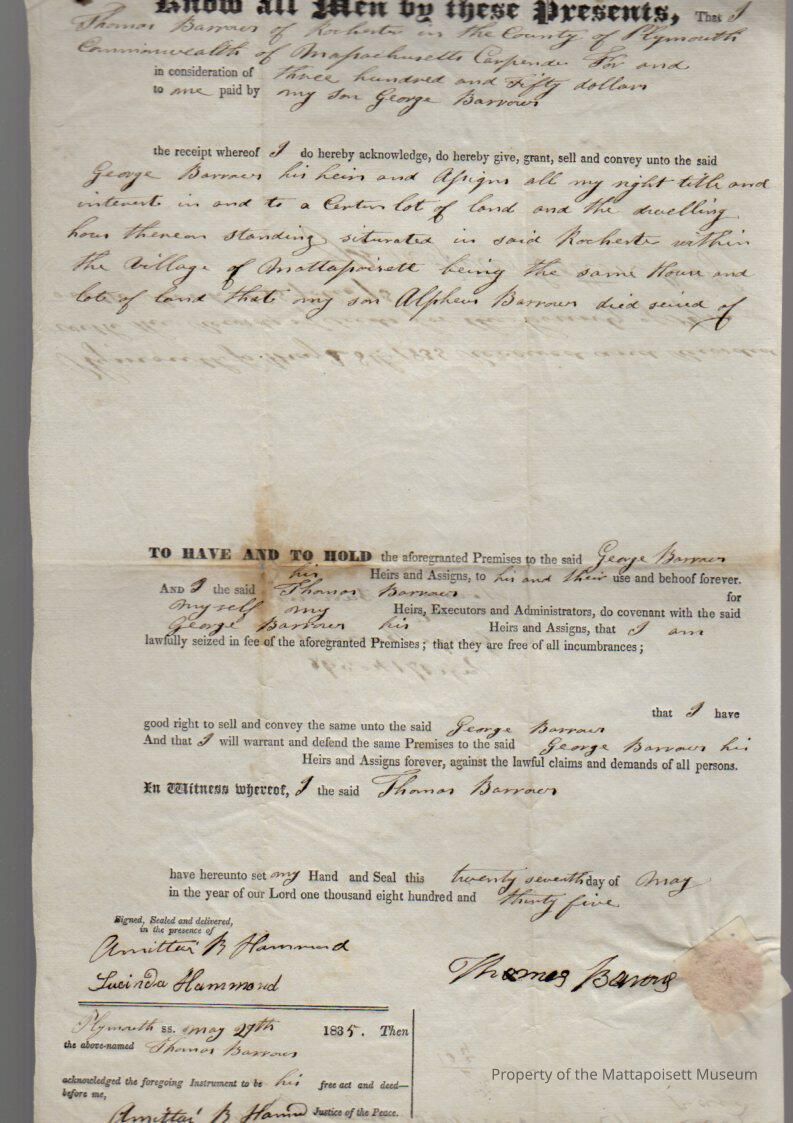 Know all Men by these Presents, That I
Thomas Barrows of Rochester in the County of Plymouth
Commonwealth of Massachusetts Carpender For and
in consideration of three hundred and Fifty dollars
to me paid by my son George Barrows
the receipt whereof I do hereby acknowledge, do hereby give, grant, sell and convey unto the said
George Barrows his heirs and Assigns all my right title and
interest in and to a Certen lot of land and the dwelling
hous thereon standing siturated in said Rochester within
the Village of Mattapoisett being the same House and
lot of land that my son Alpheus Barrows died seized of
TO HAVE AND TO HOLD the aforegranted Premises to the said George Barrows
his Heirs and Assigns, to his and their use and behoof forever.
AND I the said Thomas Barrows for
my self my Heirs, Executors and Administrators, do covenant with the said
George Barrows his Heirs and Assigns, that I am
lawfully seized in fee of the aforegranted Premises; that they are free of all incumbrances;
that I have
good right to sell and convey the same unto the said George Barrows
And that I will warrant and defend the same Premises to the said George Barrows his
Heirs and Assigns forever, against the lawful claims and demands of all persons.
In Witness whereof, I the said Thomas Barrows
have hereunto set my Hand and Seal this twenty seventh day of May
in the year of our Lord one thousand eight hundred and thirty five
Signed, Sealed and delivered,
in the presence of
Amittai B Hammond
Lucinda Hammond
Thomas Barrows
Plymouth ss. May 27th 1835. Then
the above-named Thomas Barrows
acknowledged the foregoing Instrument to be his free act and deed—
before me,
Amittai B Hammd Justice of the Peace.
Property of the Mattapoisett Museum